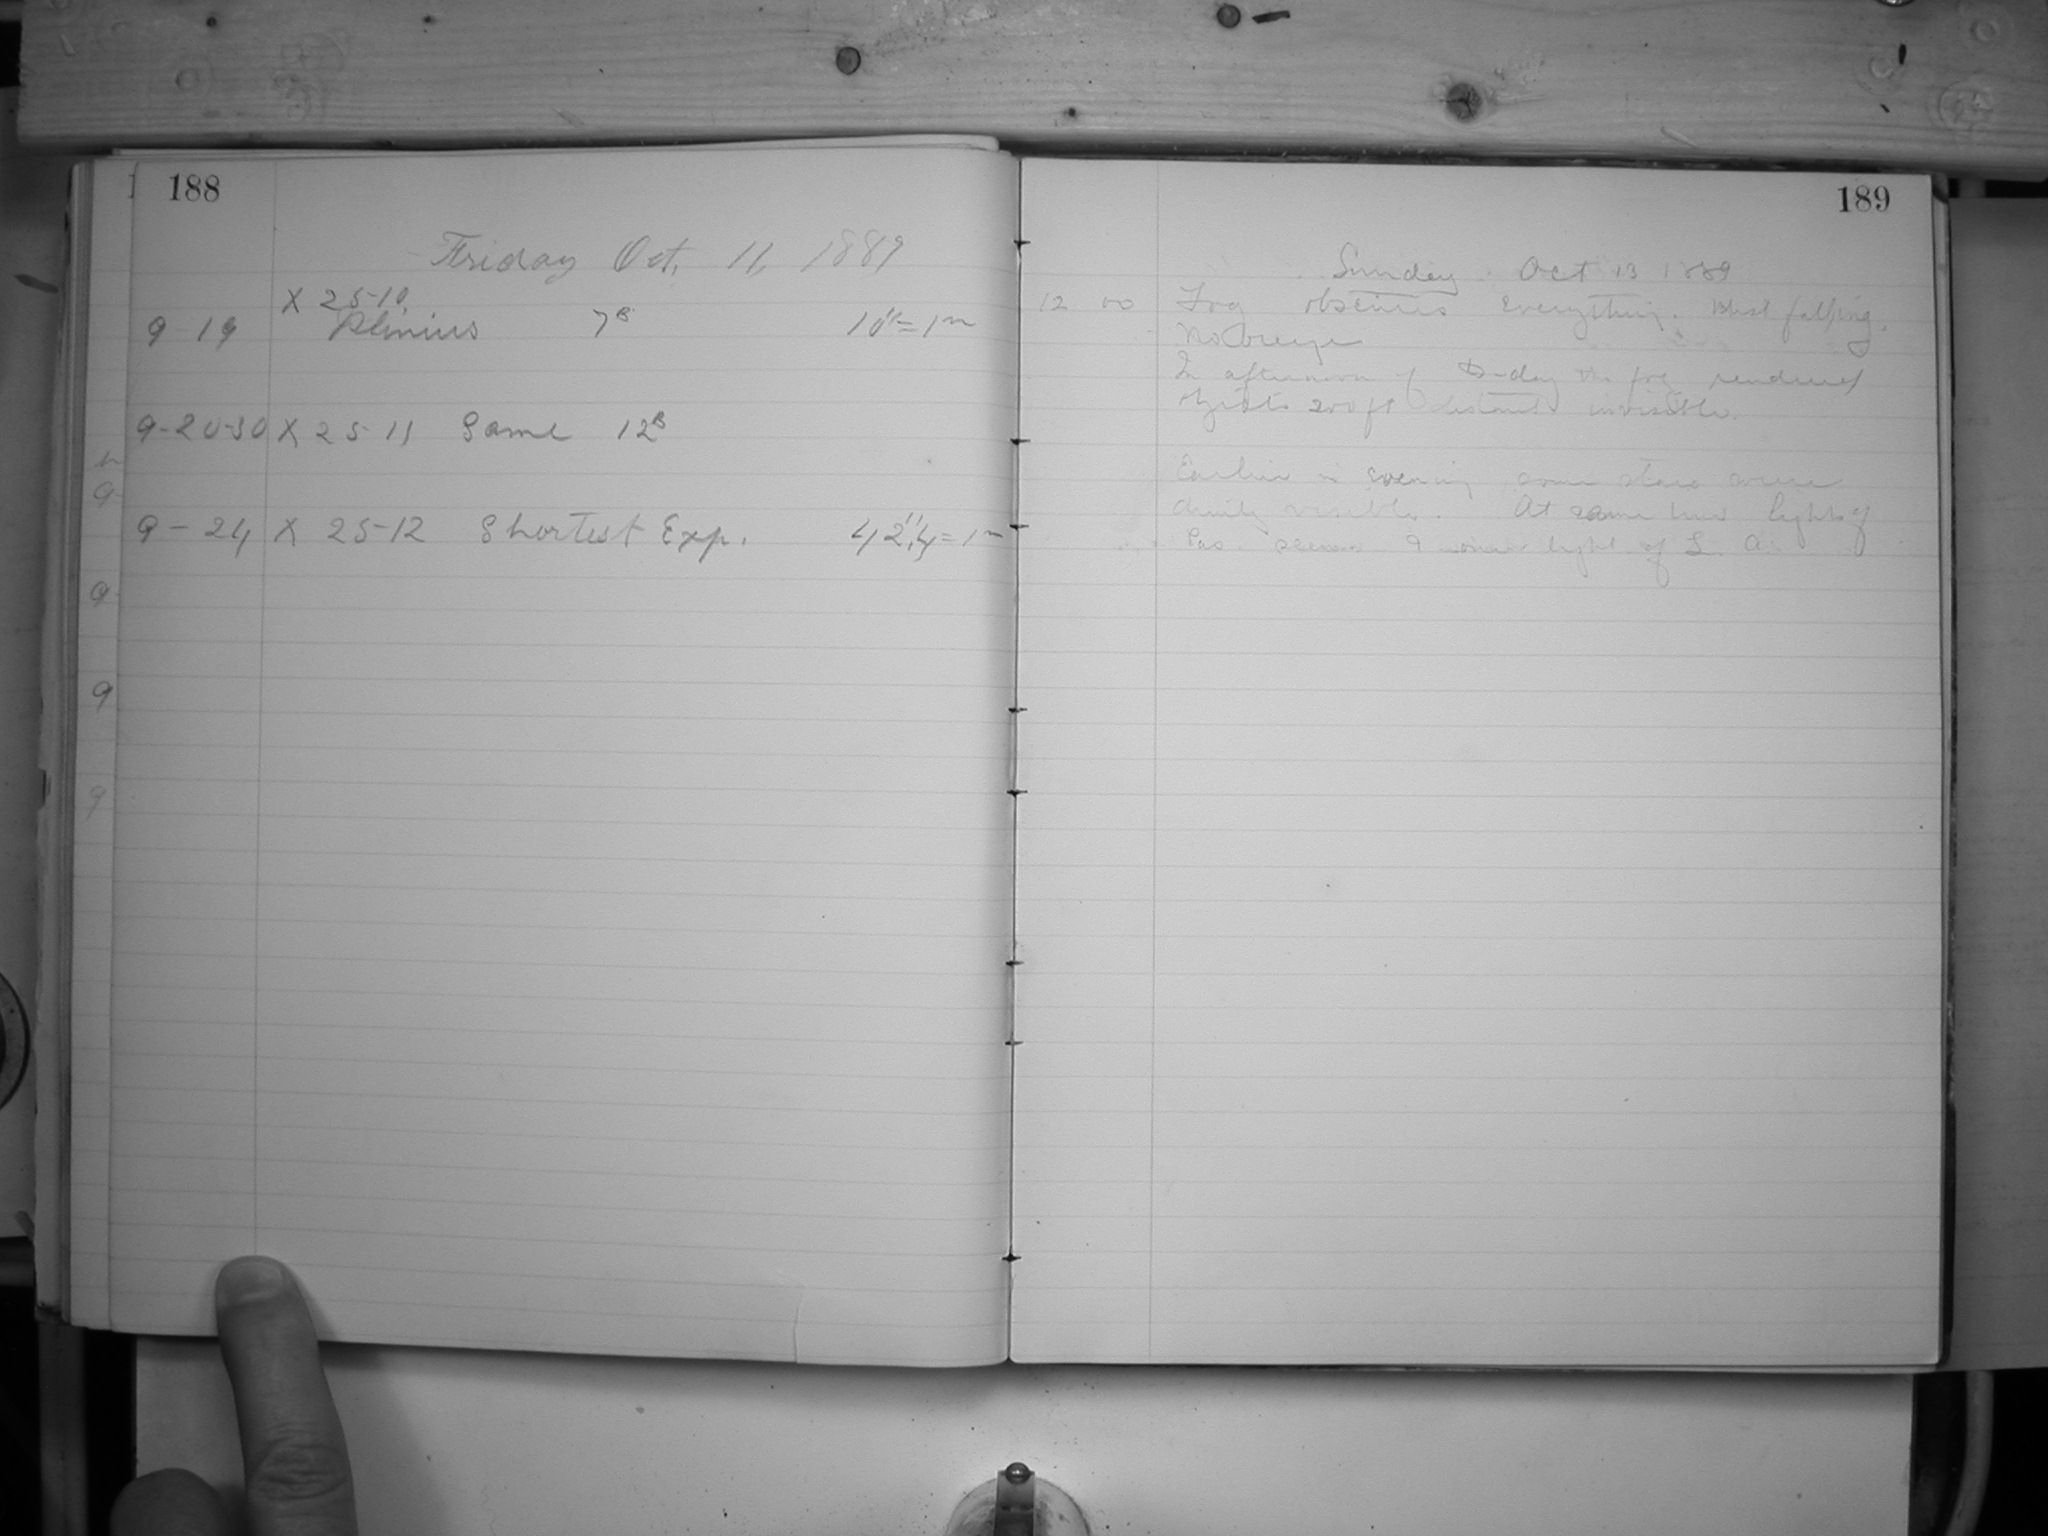 188
Friday Oct. 11, 1889
X 25-10
9 19 Plinius 7ˢ 10"=1ᵐ
9-20-30 X 25-11 Same 12ˢ
9-24 X 25-12 Shortest Exp. 42".4=1ᵐ
9
9
9
9
189
Sunday Oct 13 1889
12 00 Fog obscures everything. Mist falling.
No breeze
In afternoon of to-day the fog rendered
objects 200 ft distant invisible.
Earlier in evening some stars were
dimly visible. At same time lights of
Pas. light of L. A.